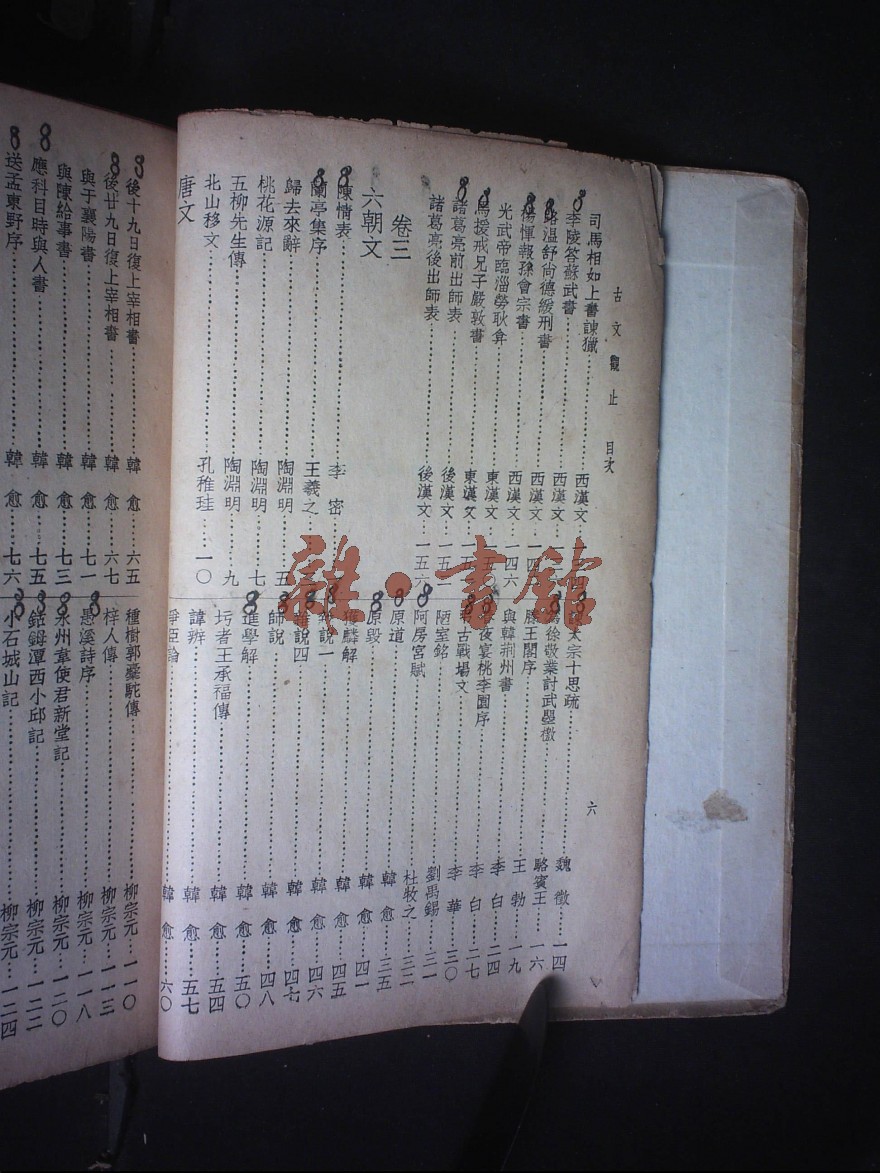 古文觀止 目次
六
司馬相如上書諫獵 西漢文
李陵答蘇武書 西漢文
路溫舒尙德緩刑書 西漢文
楊惲報孫會宗書 西漢文 一四
光武帝臨淄勞耿弇 東漢文 一四六
馬援戒兄子嚴敦書 東漢文 一五〇
諸葛亮前出師表 後漢文 一五二
諸葛亮後出師表 後漢文 一五六
卷三
六朝文
陳情表 李密
蘭亭集序 王羲之
歸去來辭 陶淵明 五
桃花源記 陶淵明 七
五柳先生傳 陶淵明 九
北山移文 孔稚珪 一〇
唐文
太宗十思疏 魏徵 一四
徐敬業討武曌檄 駱賓王 一六
滕王閣序 王勃 一九
與韓荊州書 李白 二四
夜宴桃李園序 李白 二七
古戰場文 李華 三〇
陋室銘 劉禹錫 三一
阿房宮賦 杜牧之 三二
原道 韓愈 三五
原毀 韓愈 四一
麟解 韓愈 四五
雜說一 韓愈 四六
雜說四 韓愈 四七
師說 韓愈 四八
進學解 韓愈 五〇
圬者王承福傳 韓愈 五四
諱辨 韓愈 五七
爭臣論 韓愈 六〇
後十九日復上宰相書 韓愈 六五
後廿九日復上宰相書 韓愈 六七
與于襄陽書 韓愈 七一
與陳給事書 韓愈 七三
應科目時與人書 韓愈 七五
送孟東野序 韓愈 七六
種樹郭橐駝傳 柳宗元 一一〇
梓人傳 柳宗元 一一三
愚溪詩序 柳宗元 一一八
永州韋使君新堂記 柳宗元 一二〇
鈷鉧潭西小邱記 柳宗元 一二二
小石城山記 柳宗元 一二四
雜·書館